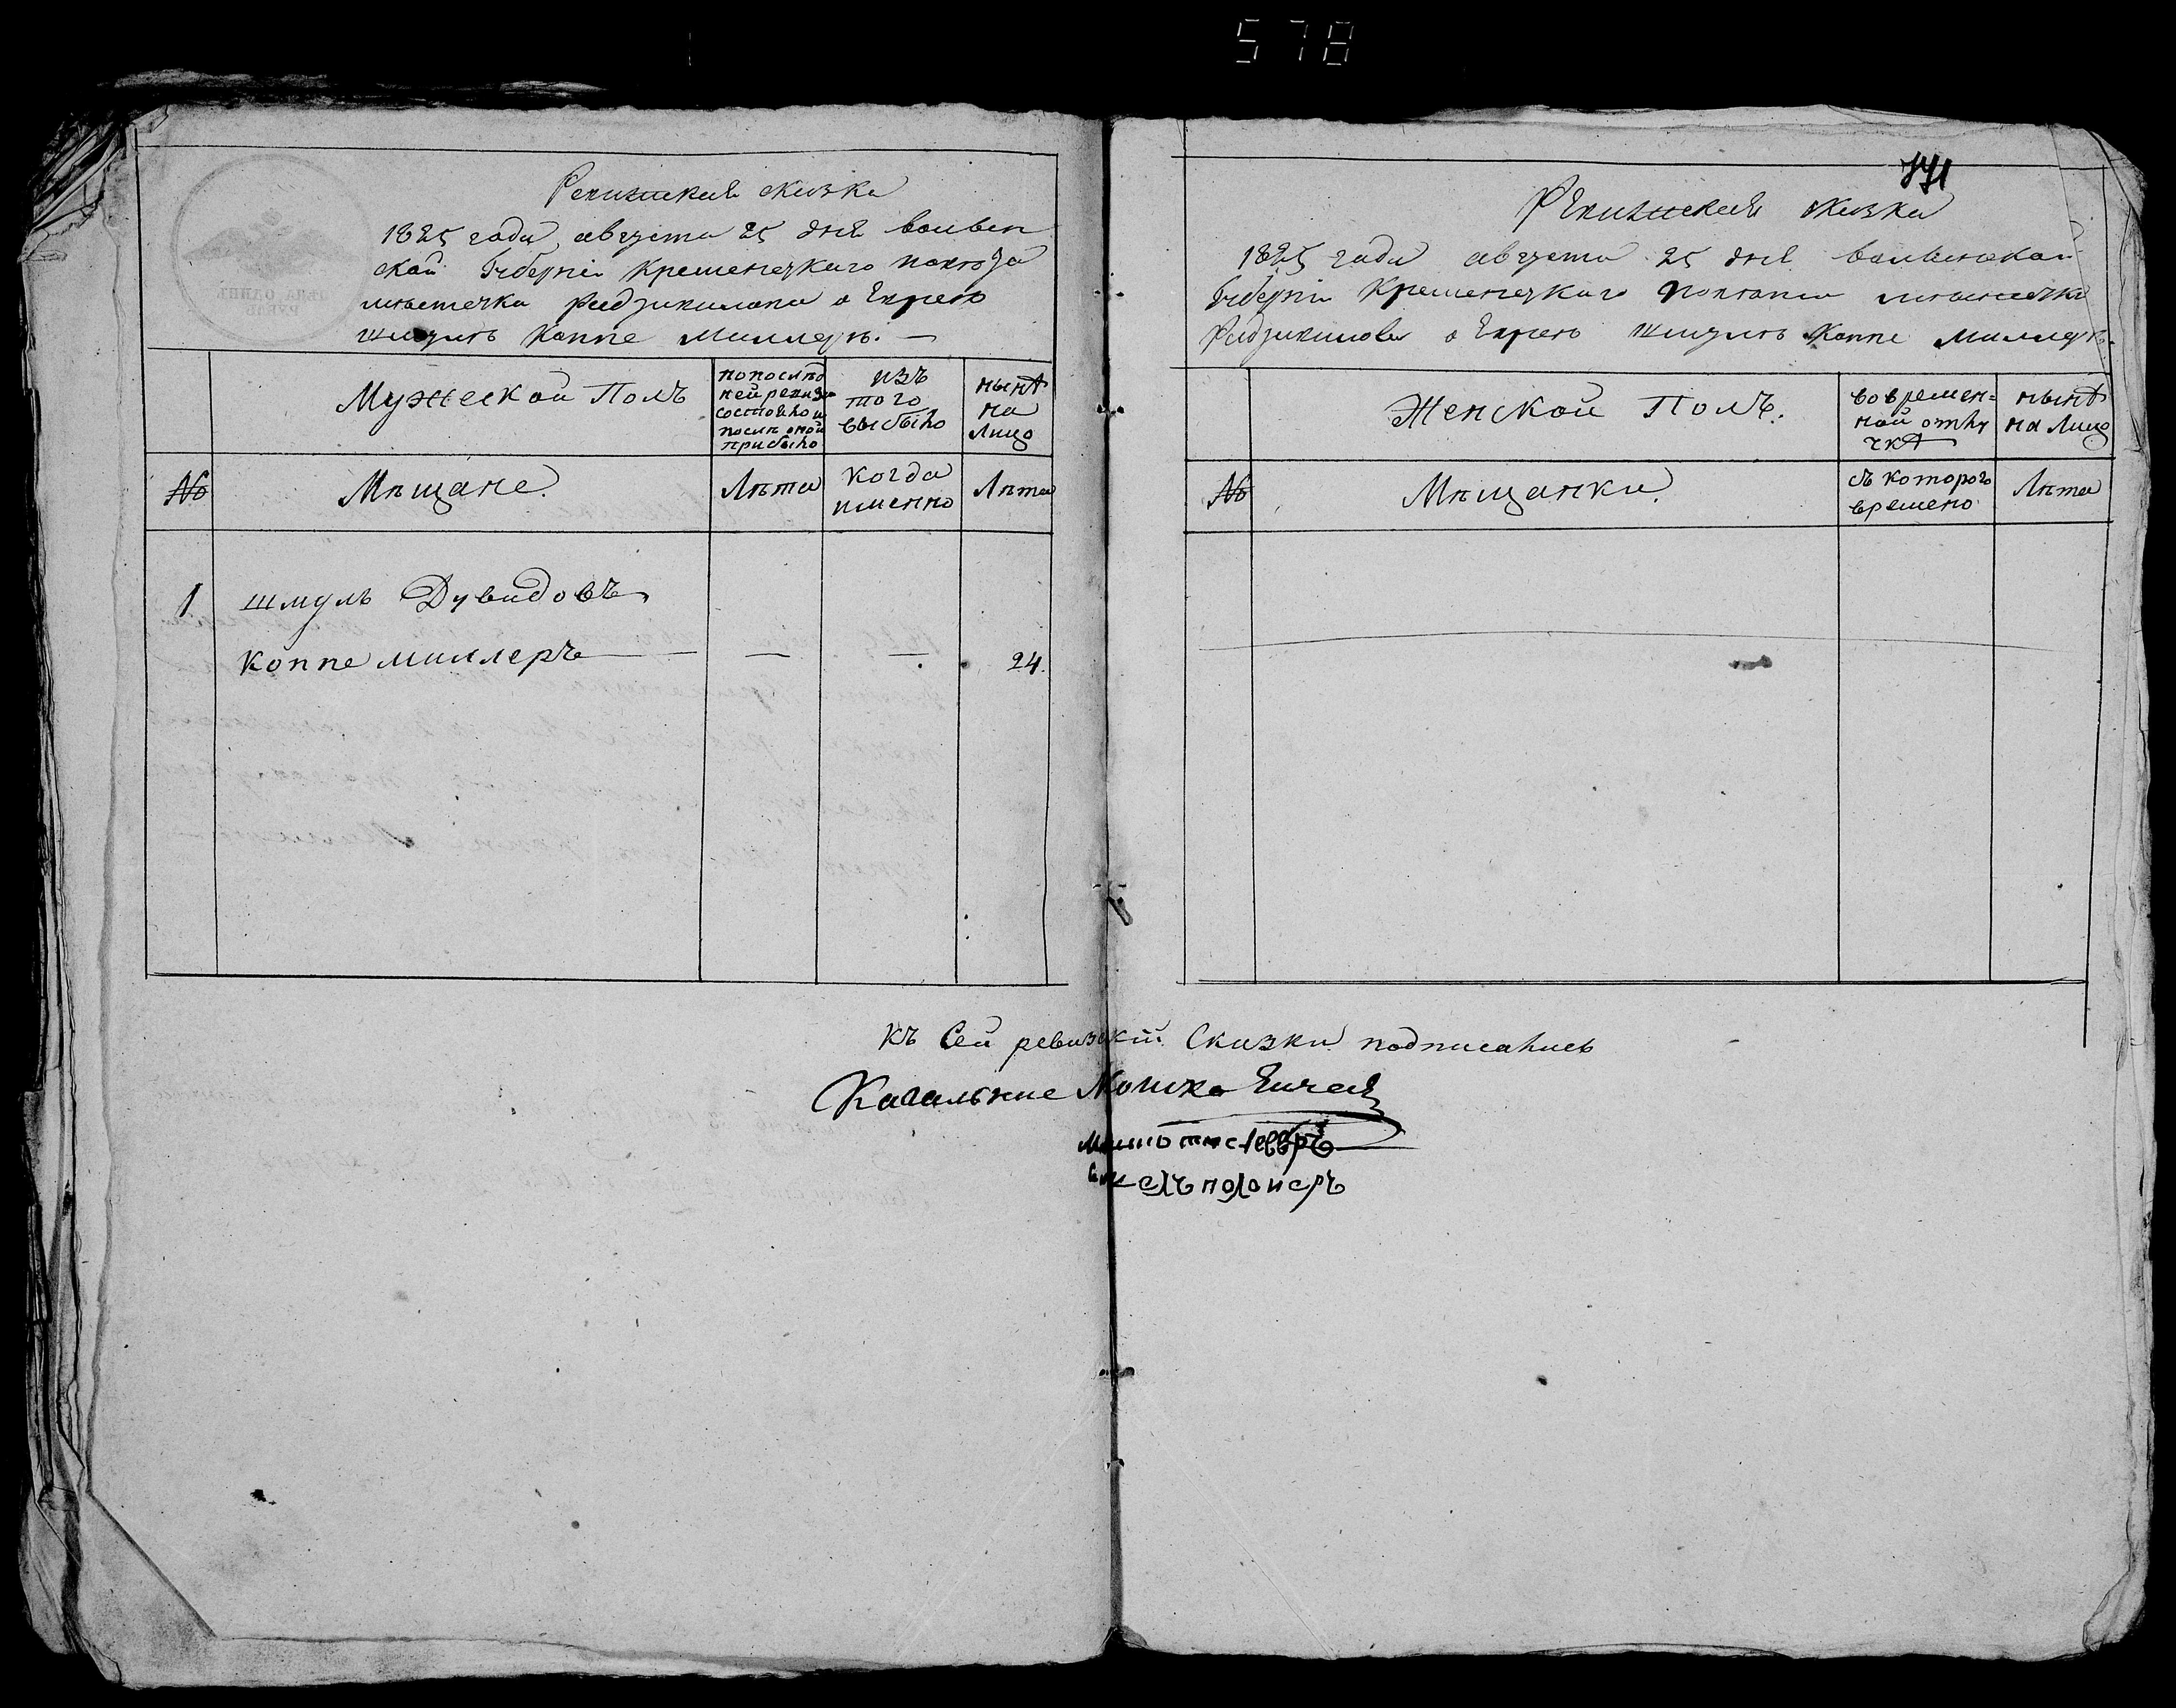 578
Ревизская сказка
1825 года августа 25 дня волын
ской Губерніи Кременецкаго повѣта
мѣстечка Радзивилова о Евреѣ
шмулѣ Коппе Миллеръ. —
Мужеской Полъ
попослѣд
ней ревизи
состояло и
послѣ оной
прибыло
изъ
того
выбыло
нынѣ
на
Лицо
№
Мѣщане.
Лѣта
когда
именно
Лѣта
1 шмуль Дувидовъ
Коппемиллеръ — — — — 24.
771
Ревизская сказка
1825 года августа 25 дня волынской
Губерніи Кременецкаго повѣта мѣстечка
Радзивилова о Евреѣ шмулѣ Коппе Миллеръ.
Женской Полъ.
вовремен=
ной отлу
чкѣ
нынѣ
на Лицо
№
Мѣщанки.
съ которого
времено
Лѣта
Къ Сей ревизкій Сказки подписались
Кагальние Мошко